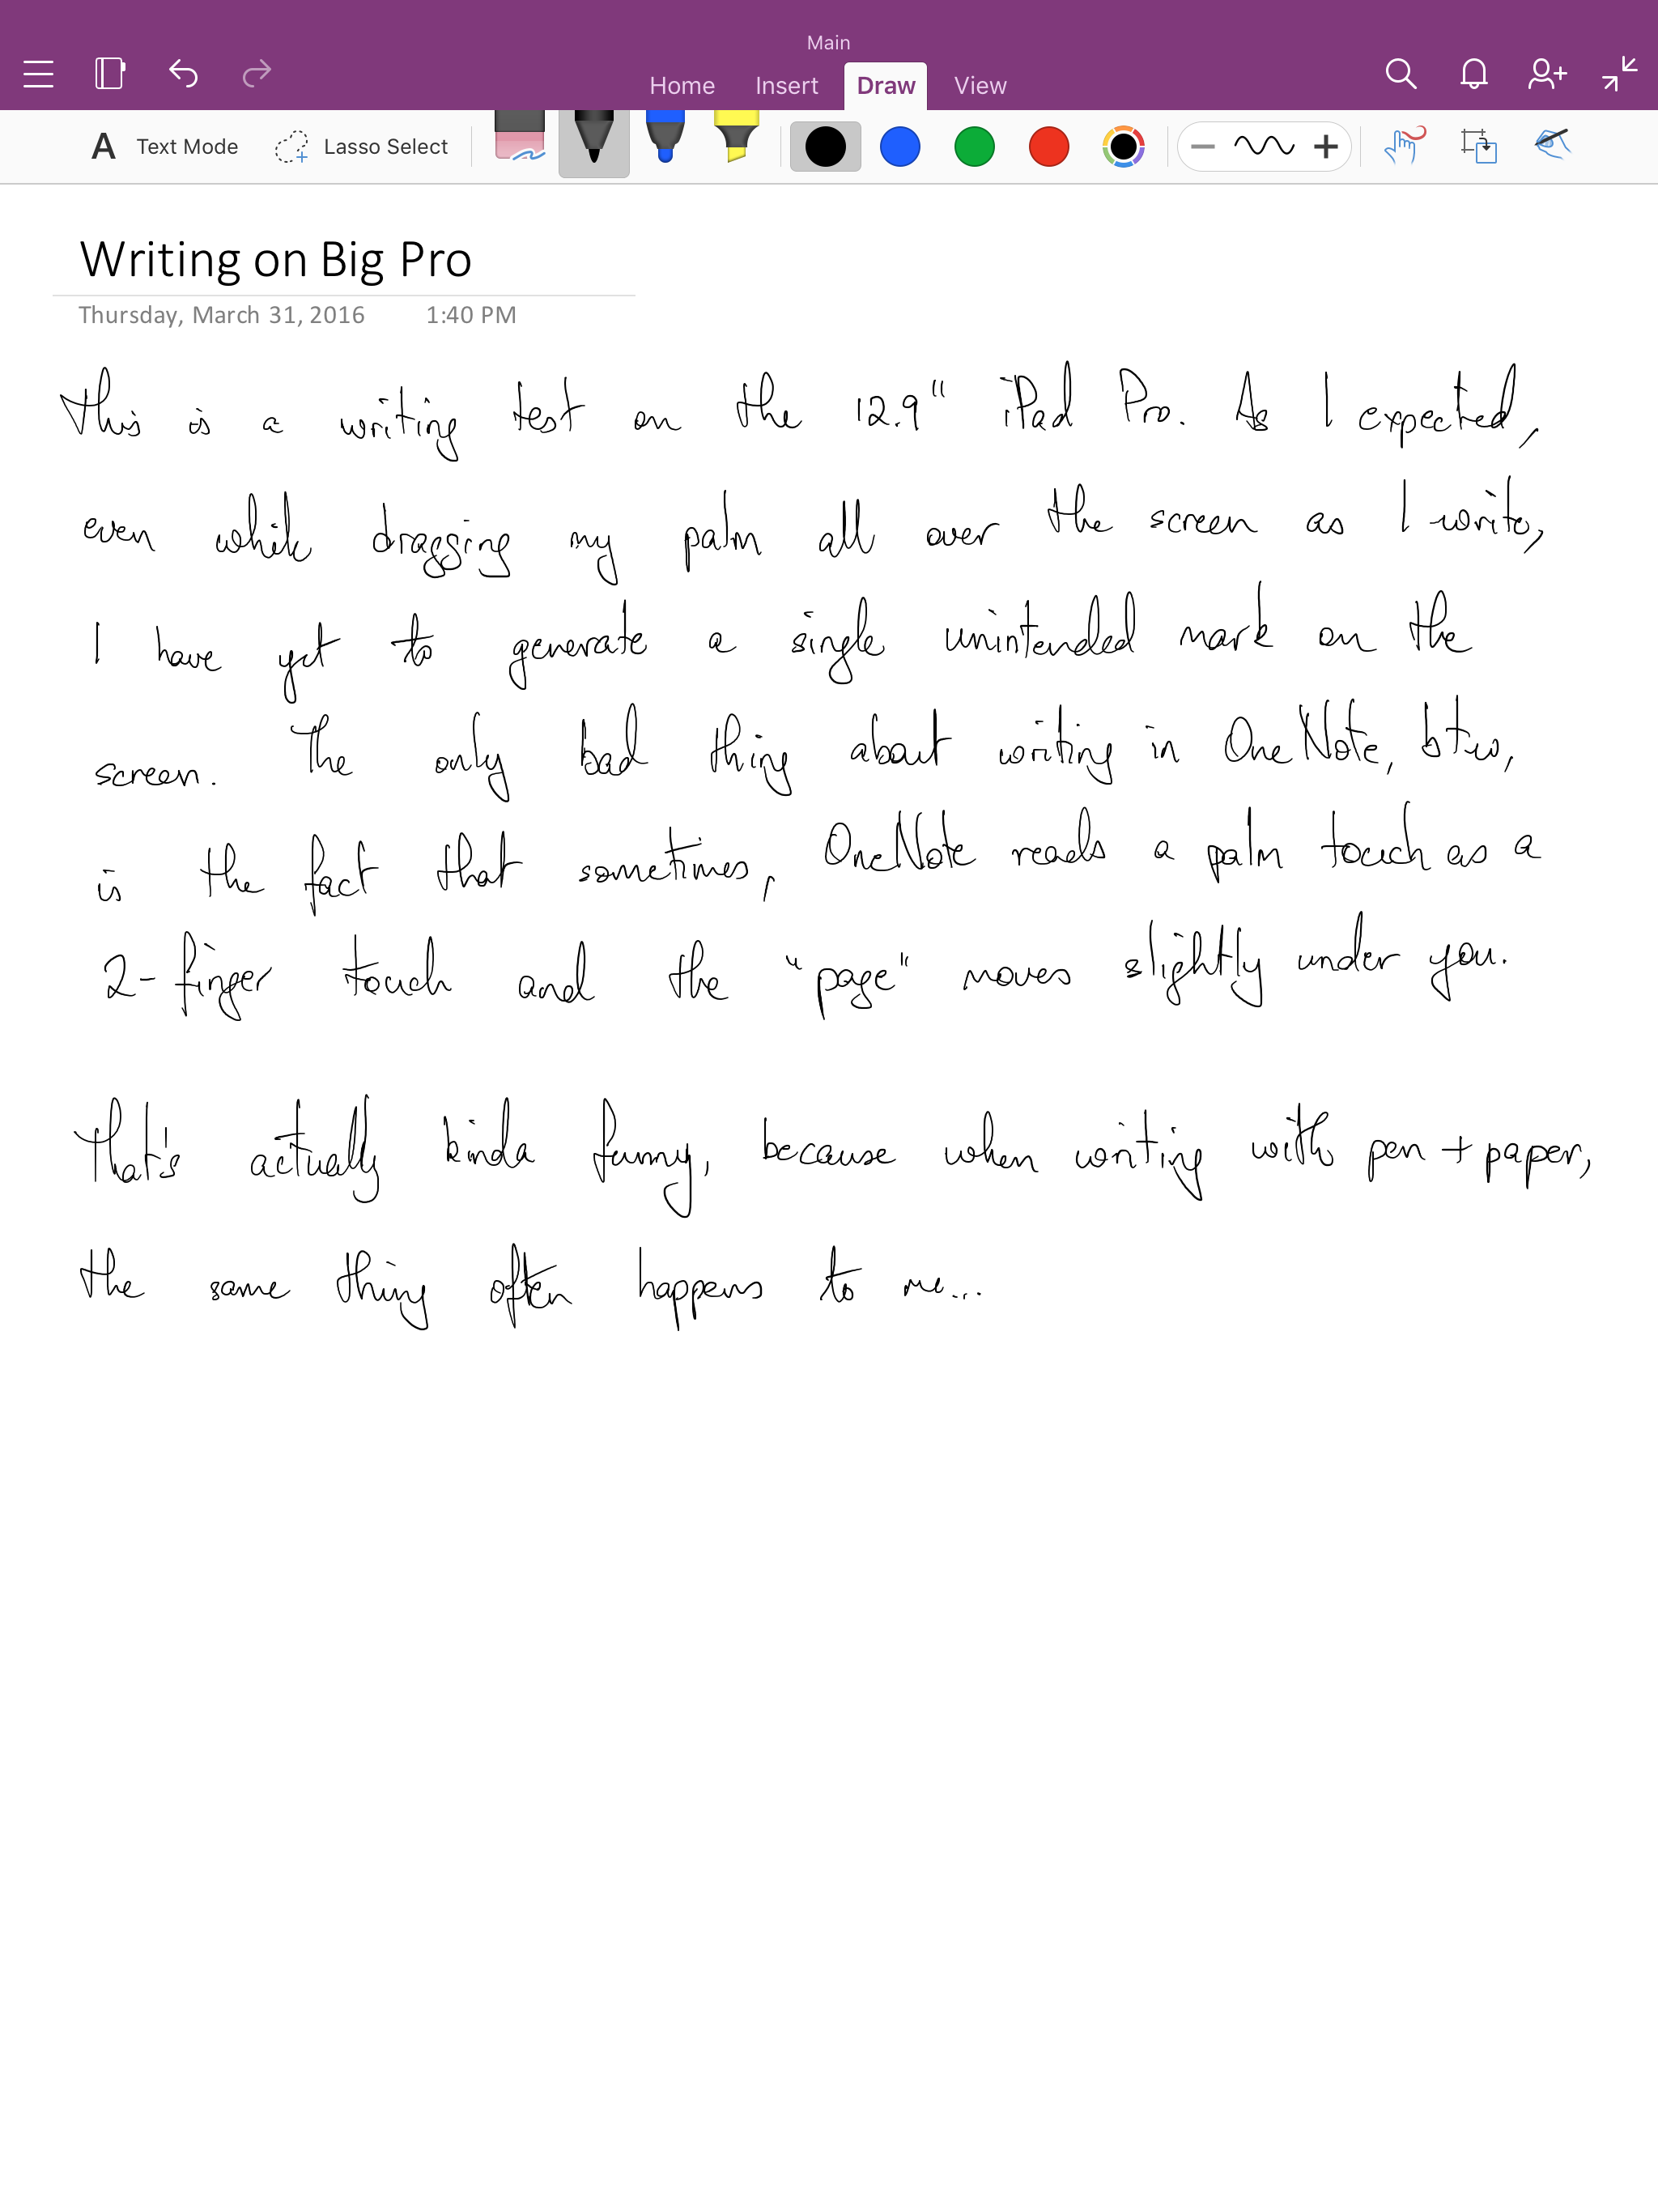 Main
Home Insert Draw View
A Text Mode Lasso Select
Writing on Big Pro
Thursday, March 31, 2016 1:40 PM
This is a writing test on the 12.9" iPad Pro. As I expected,
even while dragging my palm all over the screen as I write,
I have yet to generate a single unintended mark on the
screen. The only bad thing about writing in OneNote, btw,
is the fact that sometimes, OneNote reads a palm touch as a
2-finger touch and the "page" moves slightly under you.
That's actually kinda funny, because when writing with pen + paper,
the same thing often happens to me...